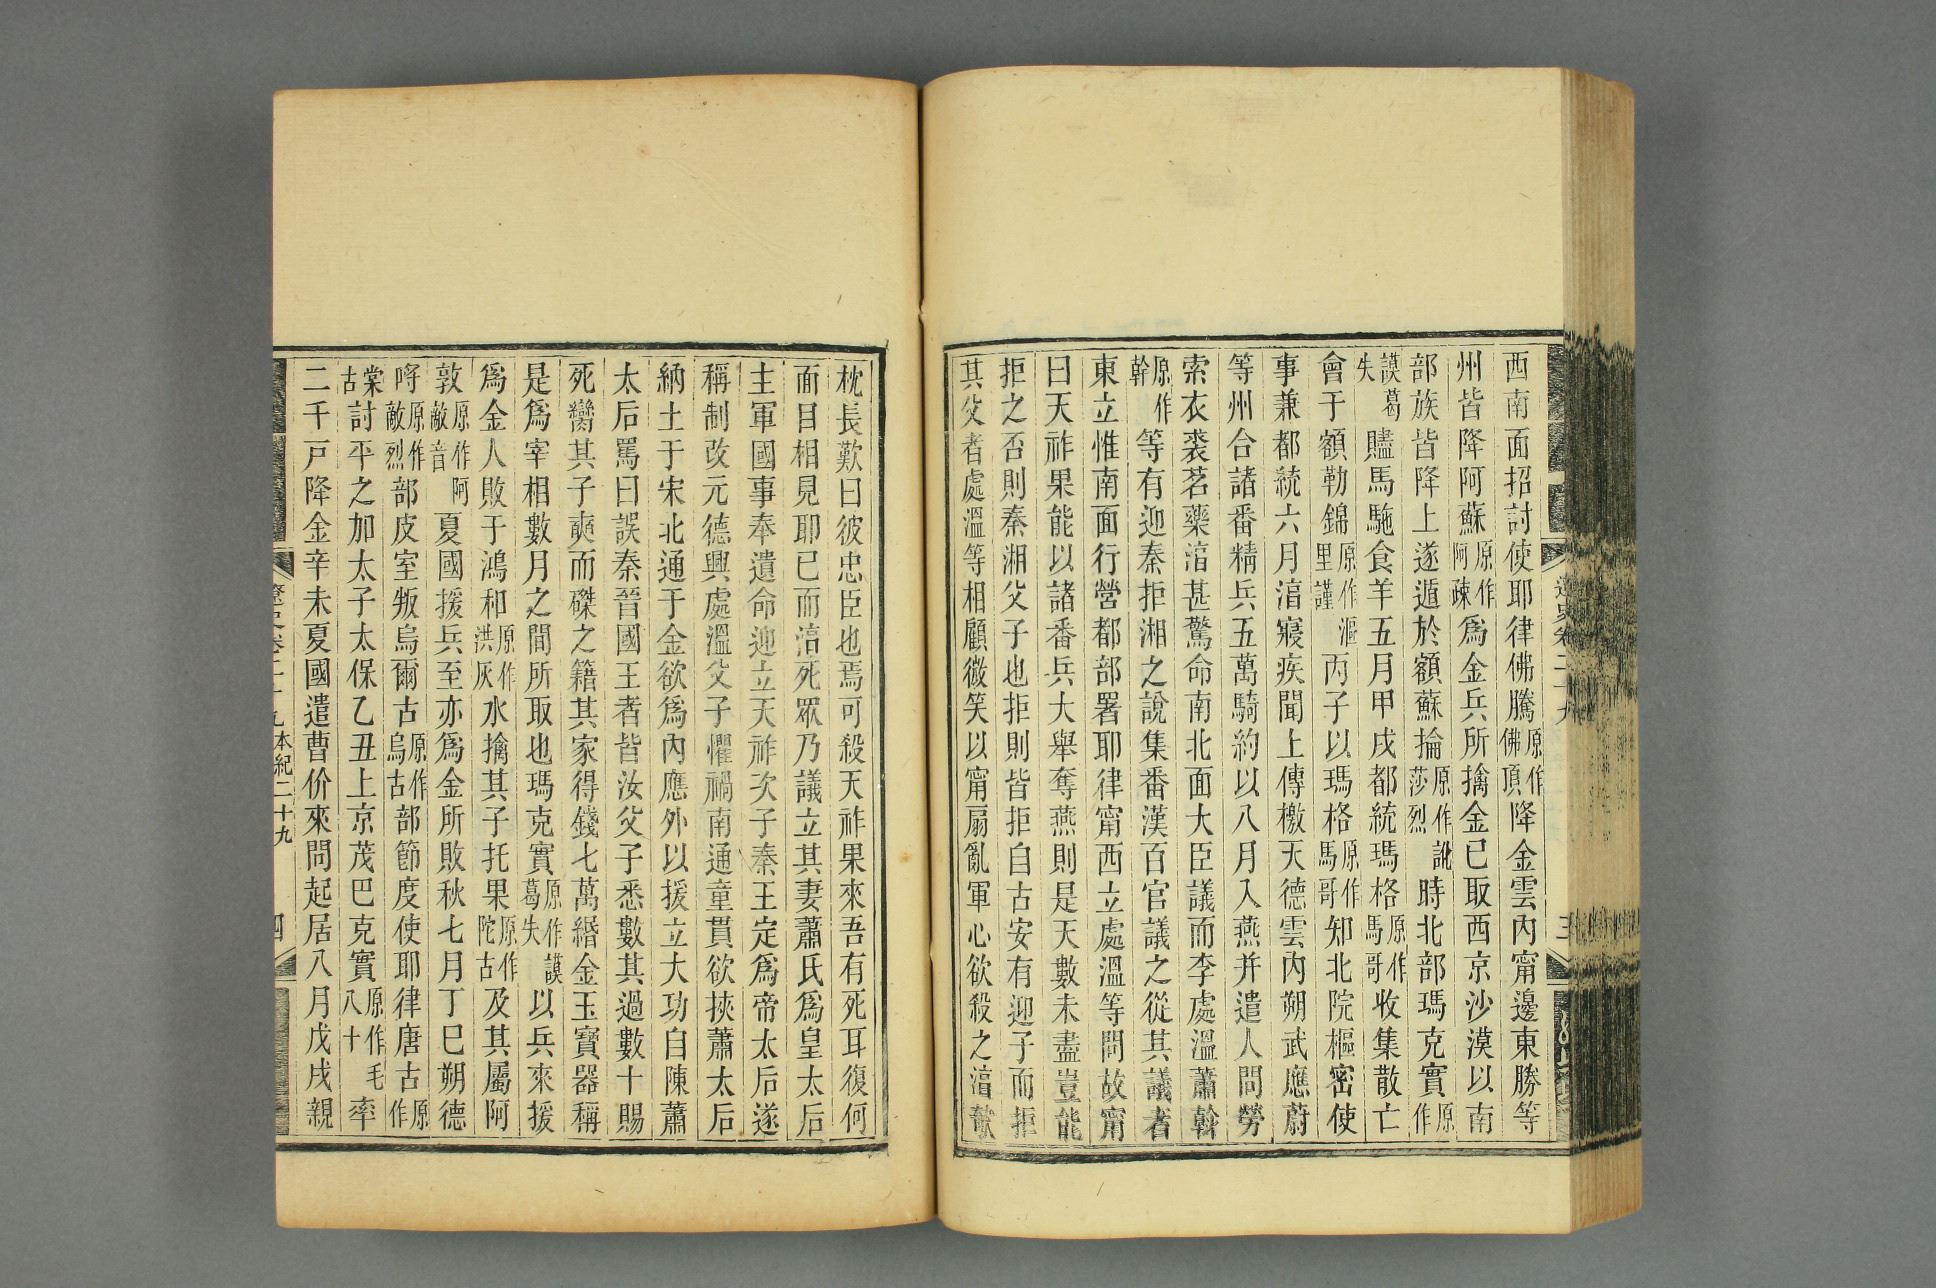 西南面招討使耶律佛騰原作佛頂降金雲內甯邊東勝等
州皆降阿蘇原作阿疎爲金兵所擒金已取西京沙漠以南
部族皆降上遂遁於額蘇掄原作訛莎烈時北部瑪克實原作
謨葛失贐馬駞食羊五月甲戌都統瑪格原作馬哥收集散亡
會于額勒錦原作漚里謹丙子以瑪格原作馬哥知北院樞密使
事兼都統六月湻寢疾聞上傳檄天德雲內朔武應蔚
等州合諸番精兵五萬騎約以八月入燕并遣人問勞
索衣裘茗藥湻甚驚命南北面大臣議而李處溫蕭幹
原作幹等有迎秦拒湘之說集番漢百官議之從其議者
東立惟南面行營都部署耶律甯西立處溫等問故甯
曰天祚果能以諸番兵大舉奪燕則是天數未盡豈能
拒之否則秦湘父子也拒則皆拒自古安有迎子而拒
其父者處溫等相顧微笑以甯扇亂軍心欲殺之湻欹
遼史卷二十九
三
枕長歎曰彼忠臣也焉可殺天祚果來吾有死耳復何
面目相見耶已而湻死眾乃議立其妻蕭氏爲皇太后
主軍國事奉遺命迎立天祚次子秦王定爲帝太后遂
稱制改元德興處溫父子懼禍南通童貫欲挾蕭太后
納土于宋北通于金欲爲內應外以援立大功自陳蕭
太后罵曰誤秦晉國王者皆汝父子悉數其過數十賜
死臠其子奭而磔之籍其家得錢七萬緡金玉寶器稱
是爲宰相數月之間所取也瑪克實原作謨葛失以兵來援
爲金人敗于鴻和原作洪灰水擒其子托果原作陀古及其屬阿
敦原作阿敵音夏國援兵至亦爲金所敗秋七月丁巳朔德
哷原作敵烈部皮室叛烏爾古原作烏古部節度使耶律唐古原作
棠古討平之加太子太保乙丑上京茂巴克實原作毛八十率
二千戸降金辛未夏國遣曹价來問起居八月戊戌親
遼史卷二十九 本紀二十九
四